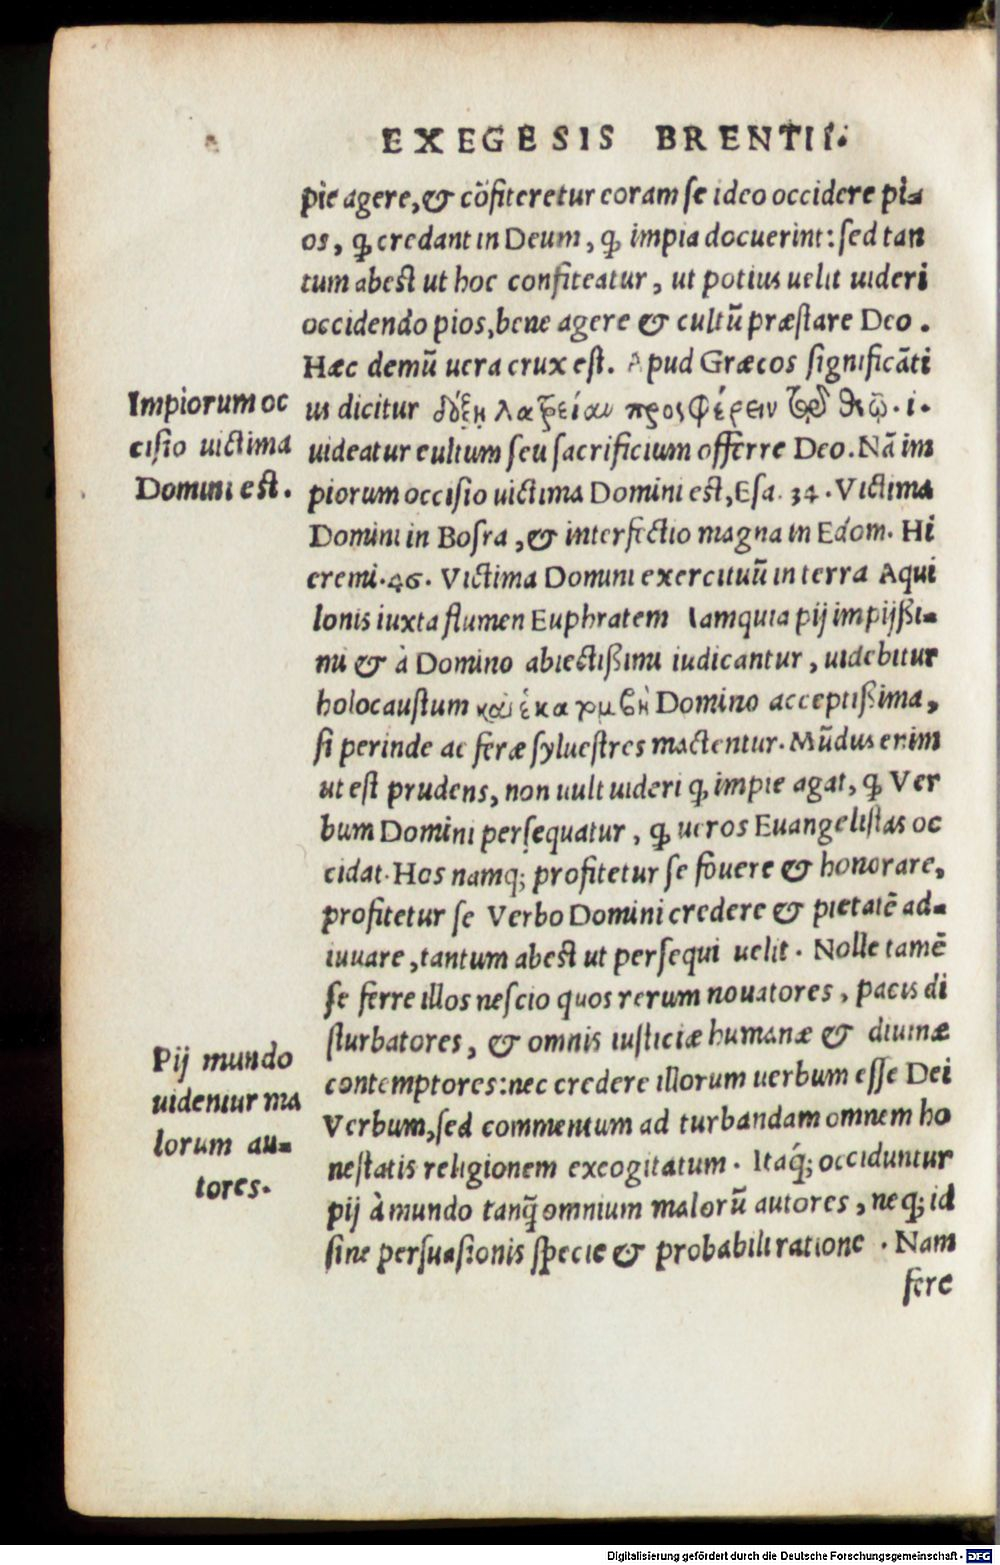 EXEGESIS BRENTII.
pie agere, & cõfiteretur coram se ideo occidere pi=
os, ꝙ credant in Deum, ꝙ impia docuerint: sed tan
tum abest ut hoc confiteatur, ut potius uelit uideri
occidendo pios, bene agere & cultũ præstare Deo.
Hæc demũ uera crux est. Apud Græcos significãti
us dicitur δόξῃ λατρείαν προσφέρειν τῷ θεῷ. i.
uideatur cultum seu sacrificium offerre Deo. Nã im
piorum occisio uictima Domini est, Esa. 34. Victima
Domini in Bosra, & interfectio magna in Edom. Hi
eremi. 46. Victima Domini exercituũ in terra Aqui
lonis iuxta flumen Euphratem Iam quia pij impijßi=
mi & à Domino abiectißimi iudicantur, uidebitur
holocaustum Domino acceptißima,
si perinde ac feræ syluestres mactentur. Mũdus enim
ut est prudens, non uult uideri ꝙ impie agat, ꝙ Ver
bum Domini persequatur, ꝙ ueros Euangelistas oc
cidat. Hos namq; profitetur se fouere & honorare,
profitetur se Verbo Domini credere & pietatẽ ad=
iuuare, tantum abest ut persequi uelit. Nolle tamẽ
se ferre illos nescio quos rerum nouatores, pacis di
sturbatores, & omnis iusticiæ humanæ & diuinæ
contemptores: nec credere illorum uerbum esse Dei
Verbum, sed commentum ad turbandam omnem ho
nestatis religionem excogitatum. Itaq́; occiduntur
pij à mundo tanq̃ omnium malorũ autores, neq; id
sine persuasionis specie & probabili ratione. Nam
fere
Impiorum oc
cisio uictima
Domini est.
Pij mundo
uidentur ma
lorum au=
tores.
Digitalisierung gefördert durch die Deutsche Forschungsgemeinschaft - DFG